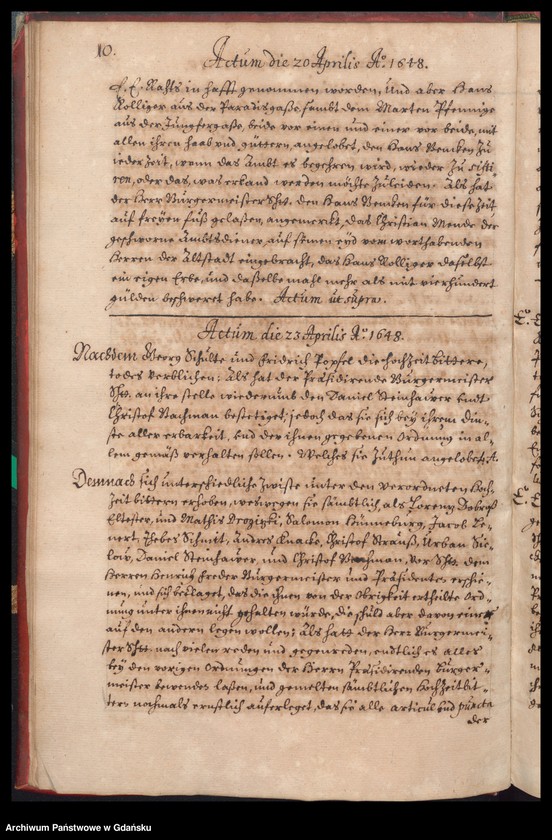 10.
Actum die 20 Aprilis Aº. 1648.
E. E. Rahts in hafft genommen worden, und aber Hans
Rolliger aus der Paradisgaße sambt dem Marten Pfennige
aus der Jungfergaße, beide vor einen und einer vor beide, mit
allen ihren haab und güttern, angelobet, den Hans Vencken zu
ieder zeit, wenn das Ambt es begehren wird, wieder zu sisti-
ren, oder das, was erkand werden möchte zuleiden. Als hat
der Herr Burgermeister Shtt. den Hans Vencken für diese Zeit
auf freyen fuß gelaßen, angemerckt, das Christian Mende der
geschworne Ambtsdiener, auf seinen eyd vom worthabenden
Herren der Altstadt eingebracht, das Hans Rolliger daselbst
ein eigen Erbe, und daßelbe mahl mehr als mit vierhundert
gülden beschweret habe. Actum ut supra.
Actum die 23 Aprilis Aº. 1648.
Nachdem Georg Schulte und Fridrich Popsel die hochzeitbittere,
todes verblichen: Als hat der Präsidirende Burgermeister
Shtt. an ihre stelle wiederumb den Daniel Steinhawer undt
Christof Nachman bestetiget; jedoch das sie sich bey ihrem din-
ste aller erbarkeit, und der ihnen gegebenen Ordnung in al-
lem gemäß verhalten sollen. Welches sie zuthun angelobet.
Demnach sich unterschiedliche zwiste unter den verordneten Hoch-
zeitbittern erhoben, weswegen sie sämbtlich, als Lorentz
Eltester, und Mathis Salomon Hünneburg, Jacob Le-
nert, Schmit, Andres Knacke, Christof Strauß, Urban Sie-
low, Daniel Steinhawer, und Christof Nachman, Vor Shtt. dem
Herren Henrich Freder Burgermeister und Präsidenten erschie-
nen, und sich beklaget, das die ihnen von der Obrigkeit ertheilte Ord-
nung unter ihnen nicht gehalten würde, die schuld aber davon einer
auf den andern legen wollen; Als hatt der Herr Burgermei-
ster Shtt. nach vielen reden und gegenreden, endtlich es alles
bey den vorigen Ordnungen der Herrn Präsidirenden Burger-
meister bewenden laßen, und gemelten sämbtlichen Hochzeitbit-
tern nochmals ernstlich auferleget, das sie alle articul und puncta
der
Archiwum Państwowe w Gdańsku